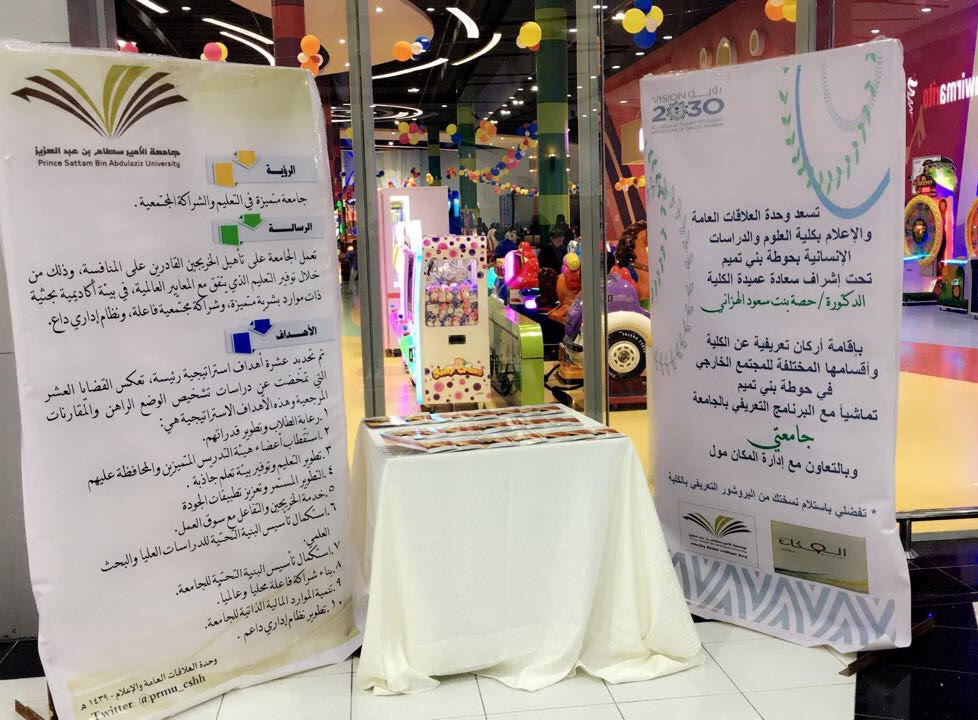 جامعة الأمير سطام بن عبد العزيز
Prince Sattam Bin Abdulaziz University
الرؤية
جامعة متميزة في التعليم والشراكة المجتمعية.
الرسالة
تعمل الجامعة على تأهيل الخريجين القادرين على المنافسة، وذلك من
خلال توفير التعليم الذي يتفق مع المعايير العالمية، في بيئة أكاديمية بحثية
ذات موارد بشرية متميزة، وشراكة مجتمعية فاعلة، ونظام إداري داعم.
الأهداف
تم تحديد عشرة أهداف استراتيجية رئيسة، تعكس القضايا العشر
التي تمخضت عن دراسات تشخيص الوضع الراهن والمقارنات
المرجعية وهذه الأهداف الاستراتيجية هي:
١. رعاية الطلاب وتطوير قدراتهم.
٢. استقطاب أعضاء هيئة التدريس المتميزين والمحافظة عليهم
٣. تطوير التعليم وتوفير بيئة تعلم جاذبة.
٤. التطوير المستمر وتعزيز تطبيقات الجودة
٥. خدمة الخريجين والتفاعل مع سوق العمل.
٦. استكمال تأسيس البنية التحتية للدراسات العليا والبحث
العلمي.
٧. استكمال تأسيس البنية التحتية للجامعة.
٨. بناء شراكة فاعلة محليا وعالميا.
٩. تنمية الموارد المالية الذاتية للجامعة.
١٠. تطوير نظام إداري داعم.
وحدة العلاقات العامة والإعلام - ١٤٣٩ هـ
Twitter: @prmu_cshh
VISION رؤية
2030
المملكة العربية السعودية
KINGDOM OF SAUDI ARABIA
تسعد وحدة العلاقات العامة
والإعلام بكلية العلوم والدراسات
الإنسانية بحوطة بني تميم
تحت إشراف سعادة عميدة الكلية
الدكتورة/ حصة بنت سعود الهزاني
بإقامة أركان تعريفية عن الكلية
وأقسامها المختلفة للمجتمع الخارجي
في حوطة بني تميم
تماشياً مع البرنامج التعريفي بالجامعة
جامعتي
وبالتعاون مع إدارة المكان مول
* تفضلي باستلام نسختك من البروشور التعريفي بالكلية
المكان